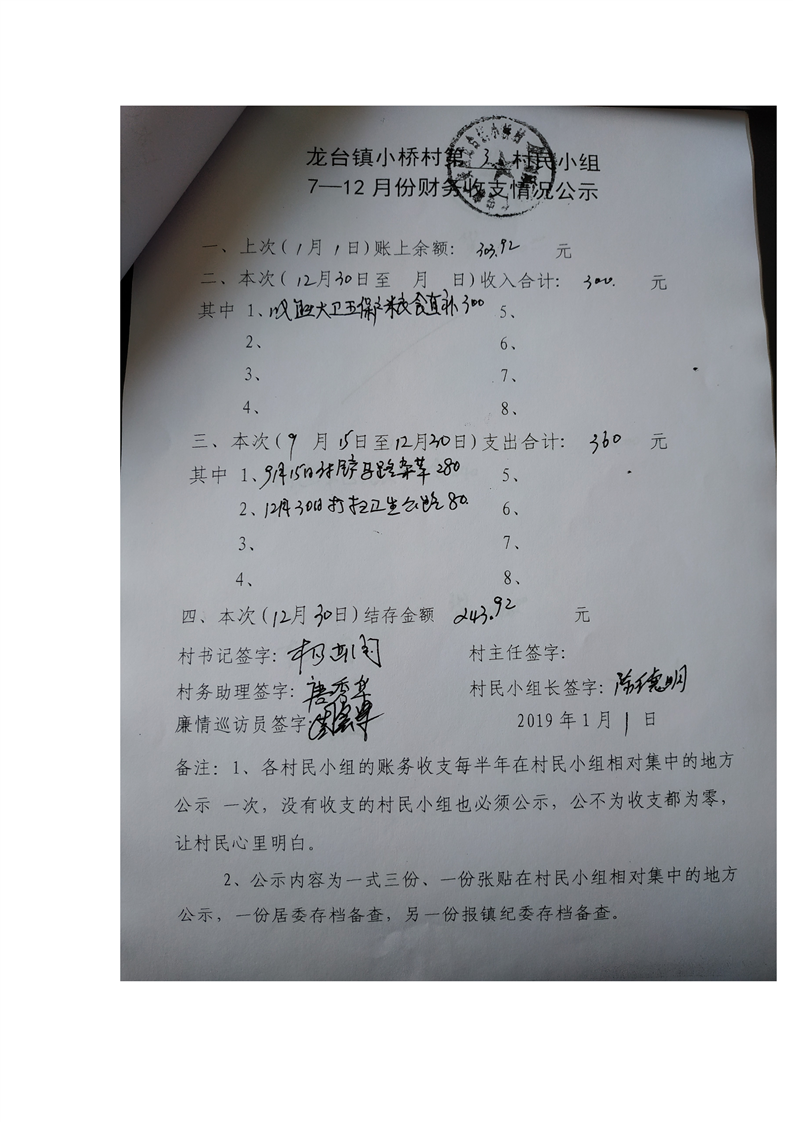 龙台镇小桥村第 3 村民小组
7—12月份财务收支情况公示
一、上次(1月1日)账上余额: 303.92 元
二、本次(12月30日至 月 日)收入合计: 300. 元
其中 1、大卫五保户粮食直补300 5、
2、 6、
3、 7、
4、 8、
三、本次(9月15日至12月30日)支出合计: 360 元
其中 1、9月15日马路杂草280 5、
2、12月30日打扫卫生公路80. 6、
3、 7、
4、 8、
四、本次(12月30日)结存金额 243.92 元
村书记签字: 村主任签字:
村务助理签字:唐秀华 村民小组长签字:
廉情巡访员签字
2019年1月1日
备注:1、各村民小组的账务收支每半年在村民小组相对集中的地方
公示 一次,没有收支的村民小组也必须公示,公不为收支都为零,
让村民心里明白。
2、公示内容为一式三份、一份张贴在村民小组相对集中的地方
公示,一份居委存档备查,另一份报镇纪委存档备查。